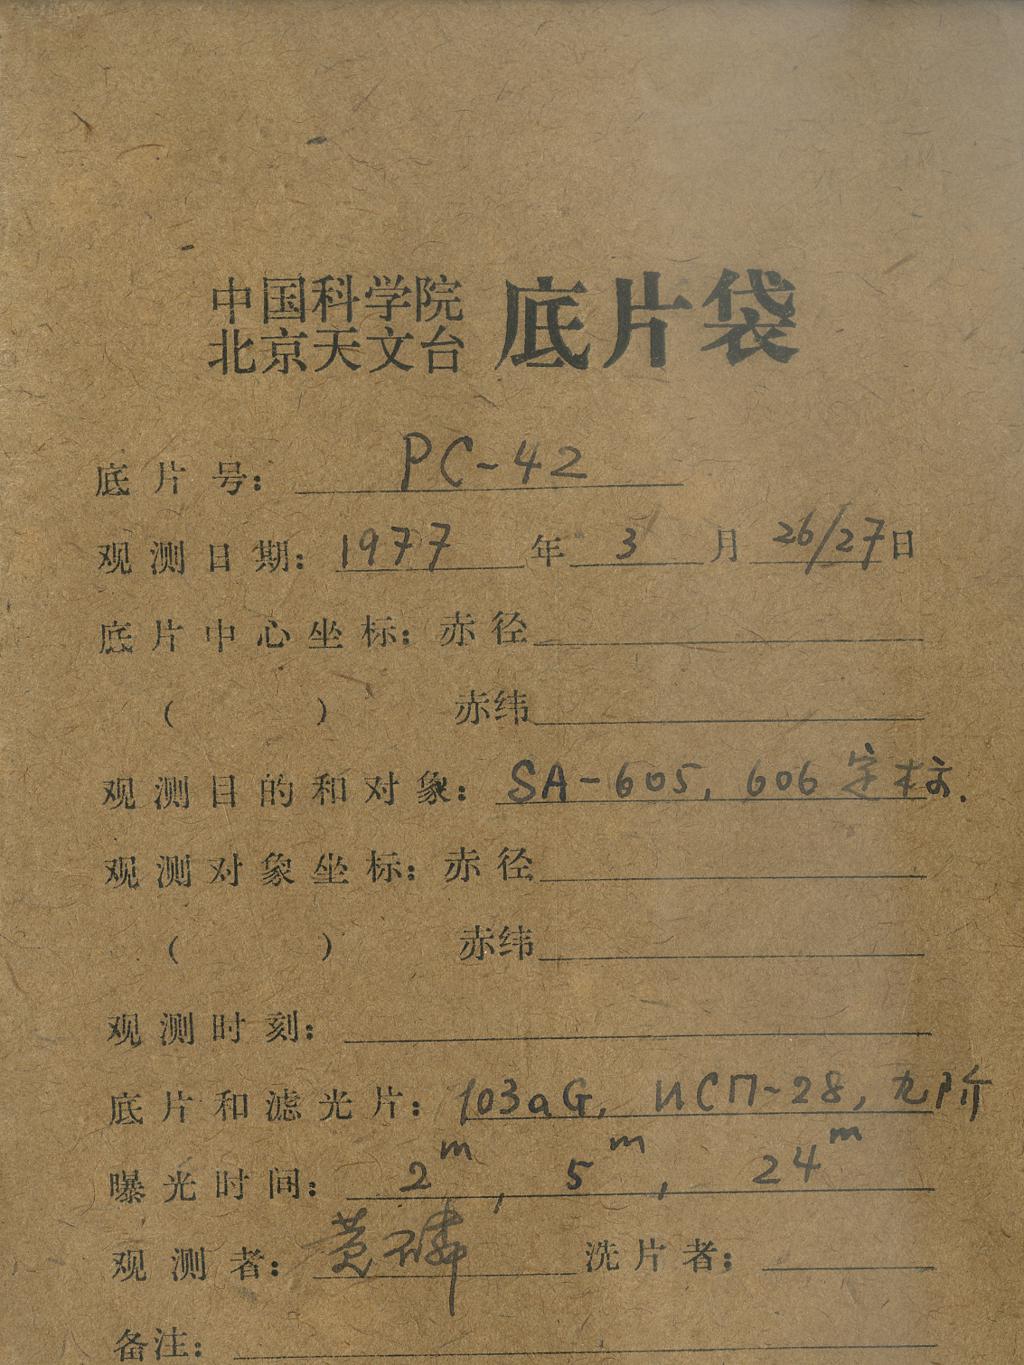 中国科学院
北京天文台 底片袋
底片号: PC-42
观测日期: 1977年3月26/27日
底片中心坐标: 赤径
( ) 赤纬
观测目的和对象: SA-605, 606 定标.
观测对象坐标: 赤径
( ) 赤纬
观测时刻:
底片和滤光片: 103aG, ИСП-28, 九阶
曝光时间: 2m, 5m, 24m
观测者: 黄磷 洗片者:
备注: